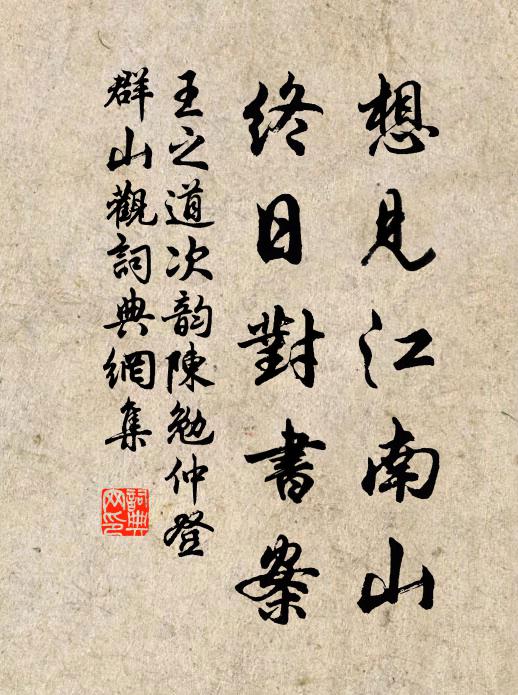 想見江南山
終日對書案
王之道次韵陳勉仲登
群山觀詞典網集
詞典网印